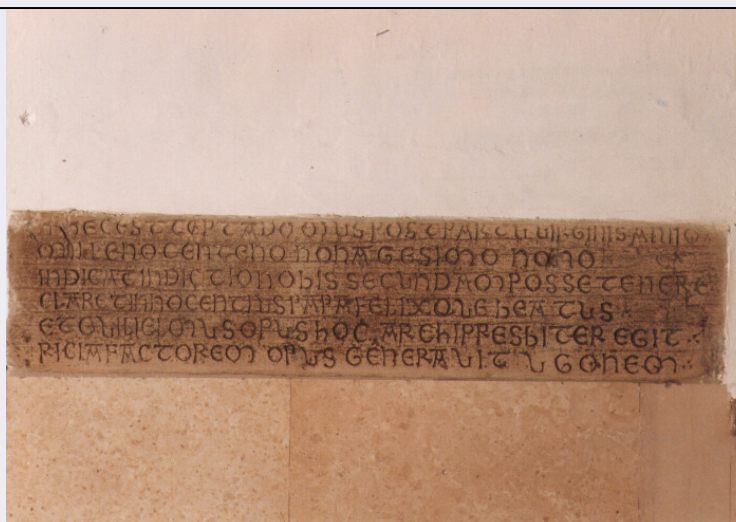 HEC EST CEPTA DOMUS POST PARTU UIRGINIS ANNO
MILLENO CENTENO NONAGESIMO NONO
INDICAT INDICTIO NOBIS SECUNDAM POSSE TENERE
CLARET INNOCENTIUS PAPA FELIXQUE BEATUS
ET GUILIELMUS OPUS HOC ARCHIPRESBITER EGIT
FACTOREM OPUS GENERAUIT UGONEM